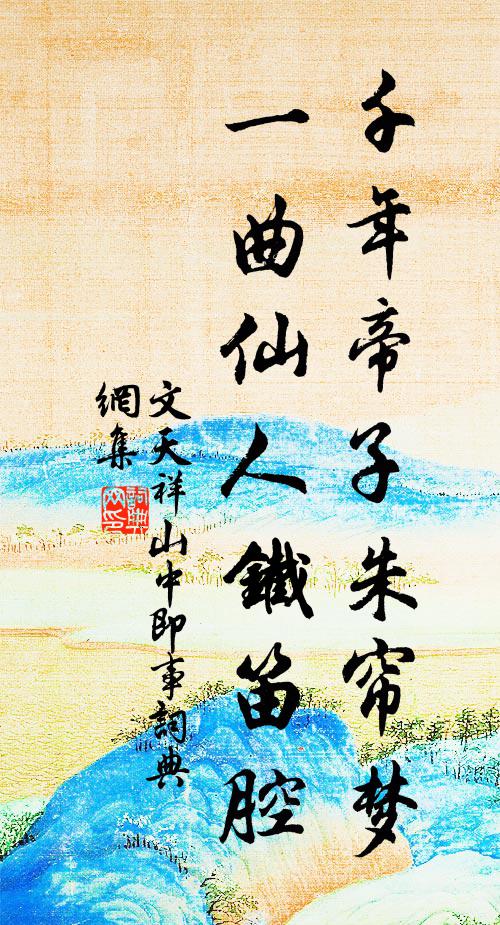 千年帝子朱帘梦
一曲仙人鐵笛腔
文天祥山中即事詞典
網集
詞典
网印